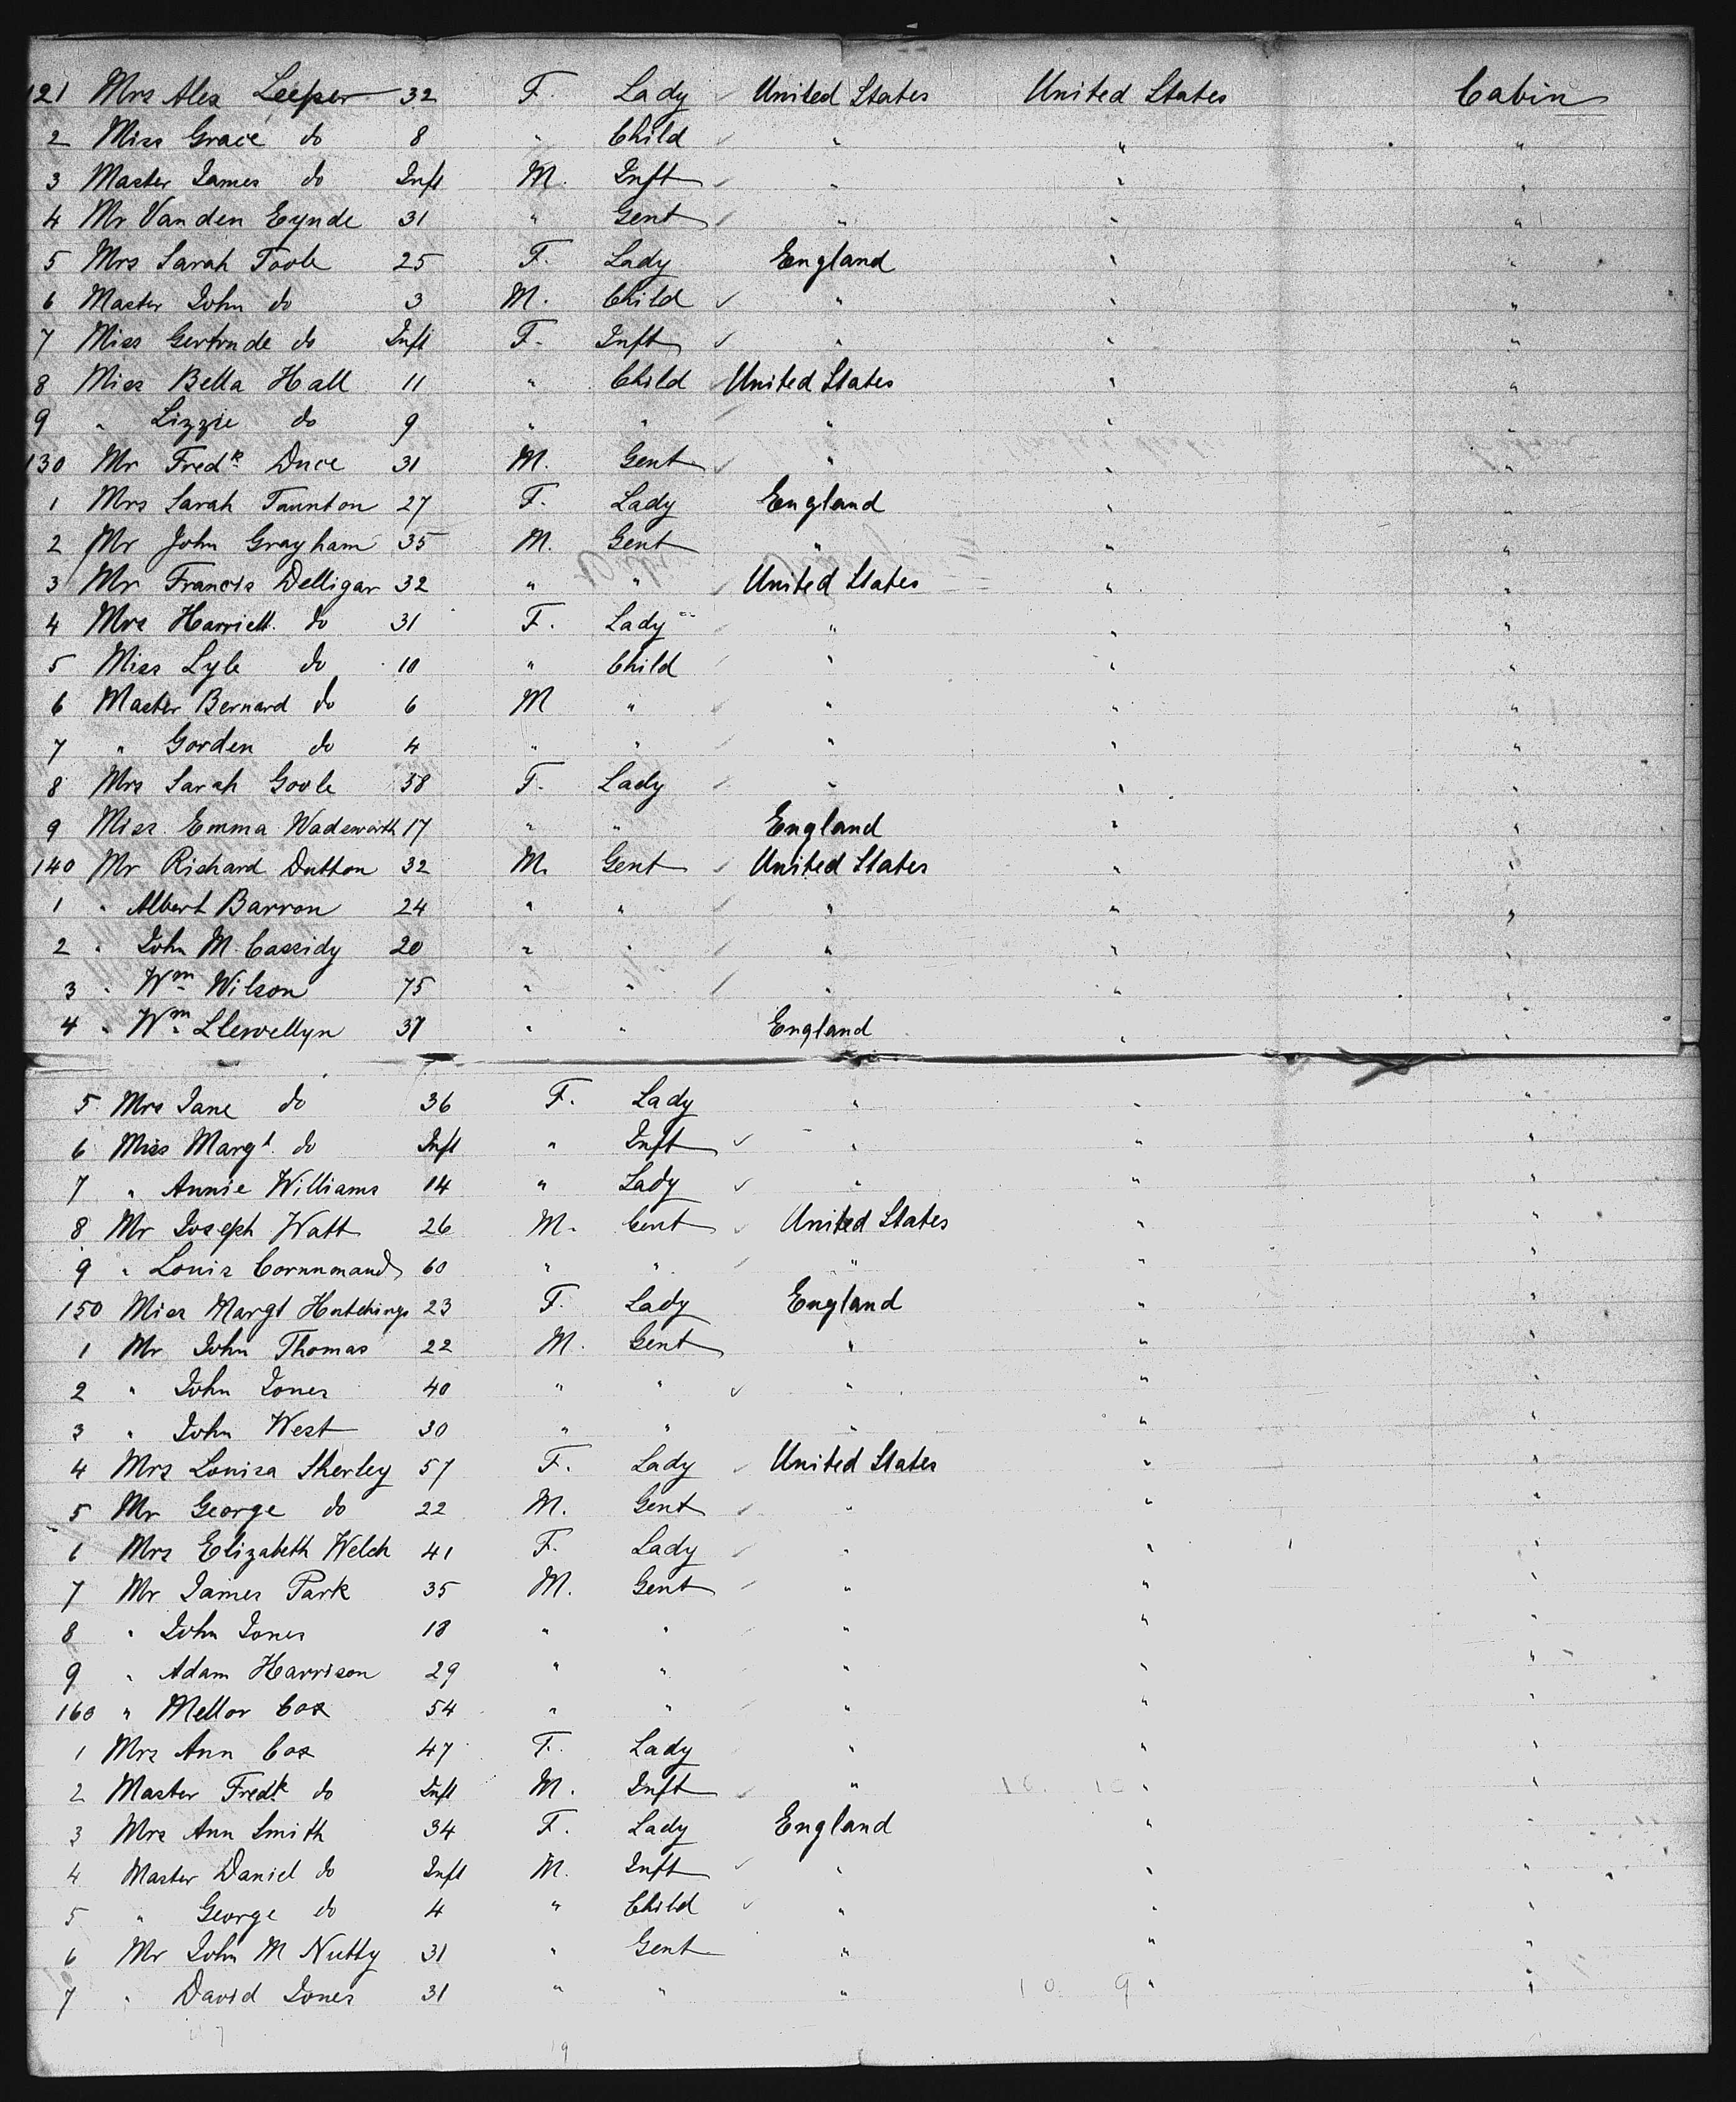 121 Mrs Alex Leeper 32 F. Lady United States United States Cabin
2 Miss Grace do 8 " Child " " "
3 Master James do Inft M. Inft " " "
4 Mr Van den Eynde 31 " Gent " " "
5 Mrs Sarah Toole 25 F. Lady England " "
6 Master John do 3 M. Child " " "
7 Miss Gertrude do Inft F. Inft " " "
8 Miss Bella Hall 11 " Child United States " "
9 " Lizzie do 9 " " " " "
130 Mr Fredk Duce 31 M. Gent " " "
1 Mrs Sarah Taunton 27 F. Lady England " "
2 Mr John Grayham 35 M. Gent " " "
3 Mr Francis Delligar 32 " " United States " "
4 Mrs Harriett do 31 F. Lady " " "
5 Miss Lyle do 10 " Child " " "
6 Master Bernard do 6 M " " " "
7 " Gorden do 4 " " " " "
8 Mrs Sarah Goole 38 F. Lady " " "
9 Miss Emma Wadsworth 17 " " England " "
140 Mr Richard Dutton 32 M. Gent United States " "
1 " Albert Barron 24 " " " " "
2 " John M. Cassidy 20 " " " " "
3 " Wm Wilson 75 " " " " "
4 " Wm Llewellyn 37 " " England " "
5 Mrs Jane do 36 F. Lady " " "
6 Miss Margt do Inft " Inft " " "
7 " Annie Williams 14 " Lady " " "
8 Mr Joseph Watt 26 M. Gent United States " "
9 " Louis Cornumand 60 " " " " "
150 Miss Margt Hutchings 23 F. Lady England " "
1 Mr John Thomas 22 M. Gent " " "
2 " John Jones 40 " " " " "
3 " John West 30 " " " " "
4 Mrs Louisa Sherley 57 F. Lady United States " "
5 Mr George do 22 M. Gent " " "
6 Mrs Elizabeth Welch 41 F. Lady " " "
7 Mr James Park 35 M. Gent " " "
8 " John Jones 18 " " " " "
9 " Adam Harrison 29 " " " " "
160 " Mellor Cox 54 " " " " "
1 Mrs Ann Cox 47 F. Lady " " "
2 Master Fredk do Inft M. Inft " 10. 10 " "
3 Mrs Ann Smith 34 F. Lady England " "
4 Master Daniel do Inft M. Inft " " "
5 " George do 4 " Child " " "
6 Mr John M Nutty 31 " Gent " " "
7 " David Jones 31 " " " 10 9 " "